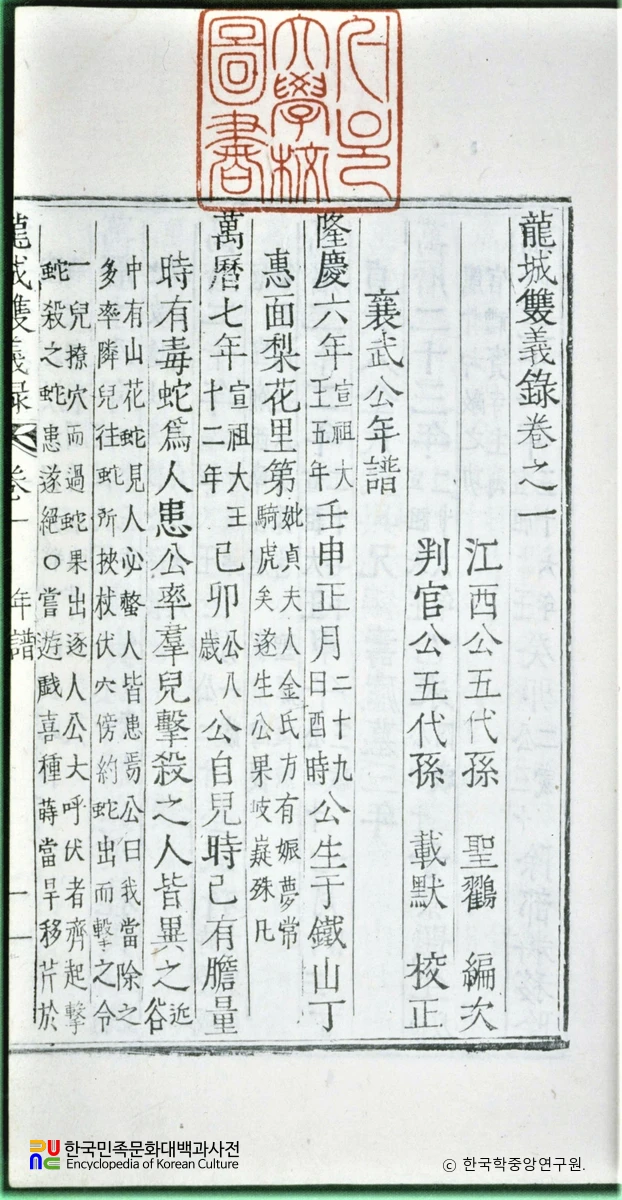 서울
大學校
圖書
龍城雙義錄卷之一
江西公五代孫 聖鸐 編次
判官公五代孫 載默 校正
襄武公年譜
隆慶六年宣祖大王五年壬申正月二十九日酉時公生于鐵山丁
惠面梨花里第妣貞夫人金氏方有娠夢常騎虎矣遂生公果岐嶷殊凡
萬曆七年宣祖大王十二年己卯公八歲公自兒時已有膽量
時有毒蛇爲人患公率羣兒擊殺之人皆異之近谷
中有山花蛇見人必螫人皆患焉公曰我當除之
多率隣兒往蛇所披杖伏穴傍約蛇出而擊之令
一兒撩穴而過蛇果出逐人公大呼伏者齊起擊
蛇殺之蛇患遂絶○嘗遊戱喜種蒔當旱移芹於
龍城雙義錄 卷一 年譜 一
한국민족문화대백과사전
Encyclopedia of Korean Culture
ⓒ 한국학중앙연구원.